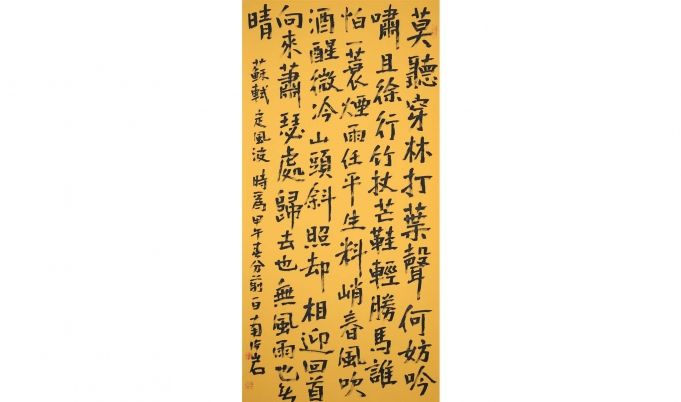 莫聽穿林打葉聲何妨吟
嘯且徐行竹杖芒鞋輕勝馬誰
怕一蓑煙雨任平生料峭春風吹
酒醒微冷山頭斜照却相迎回首
向來蕭瑟處歸去也無風雨也无
晴
蘇軾定風波時爲甲午春分前